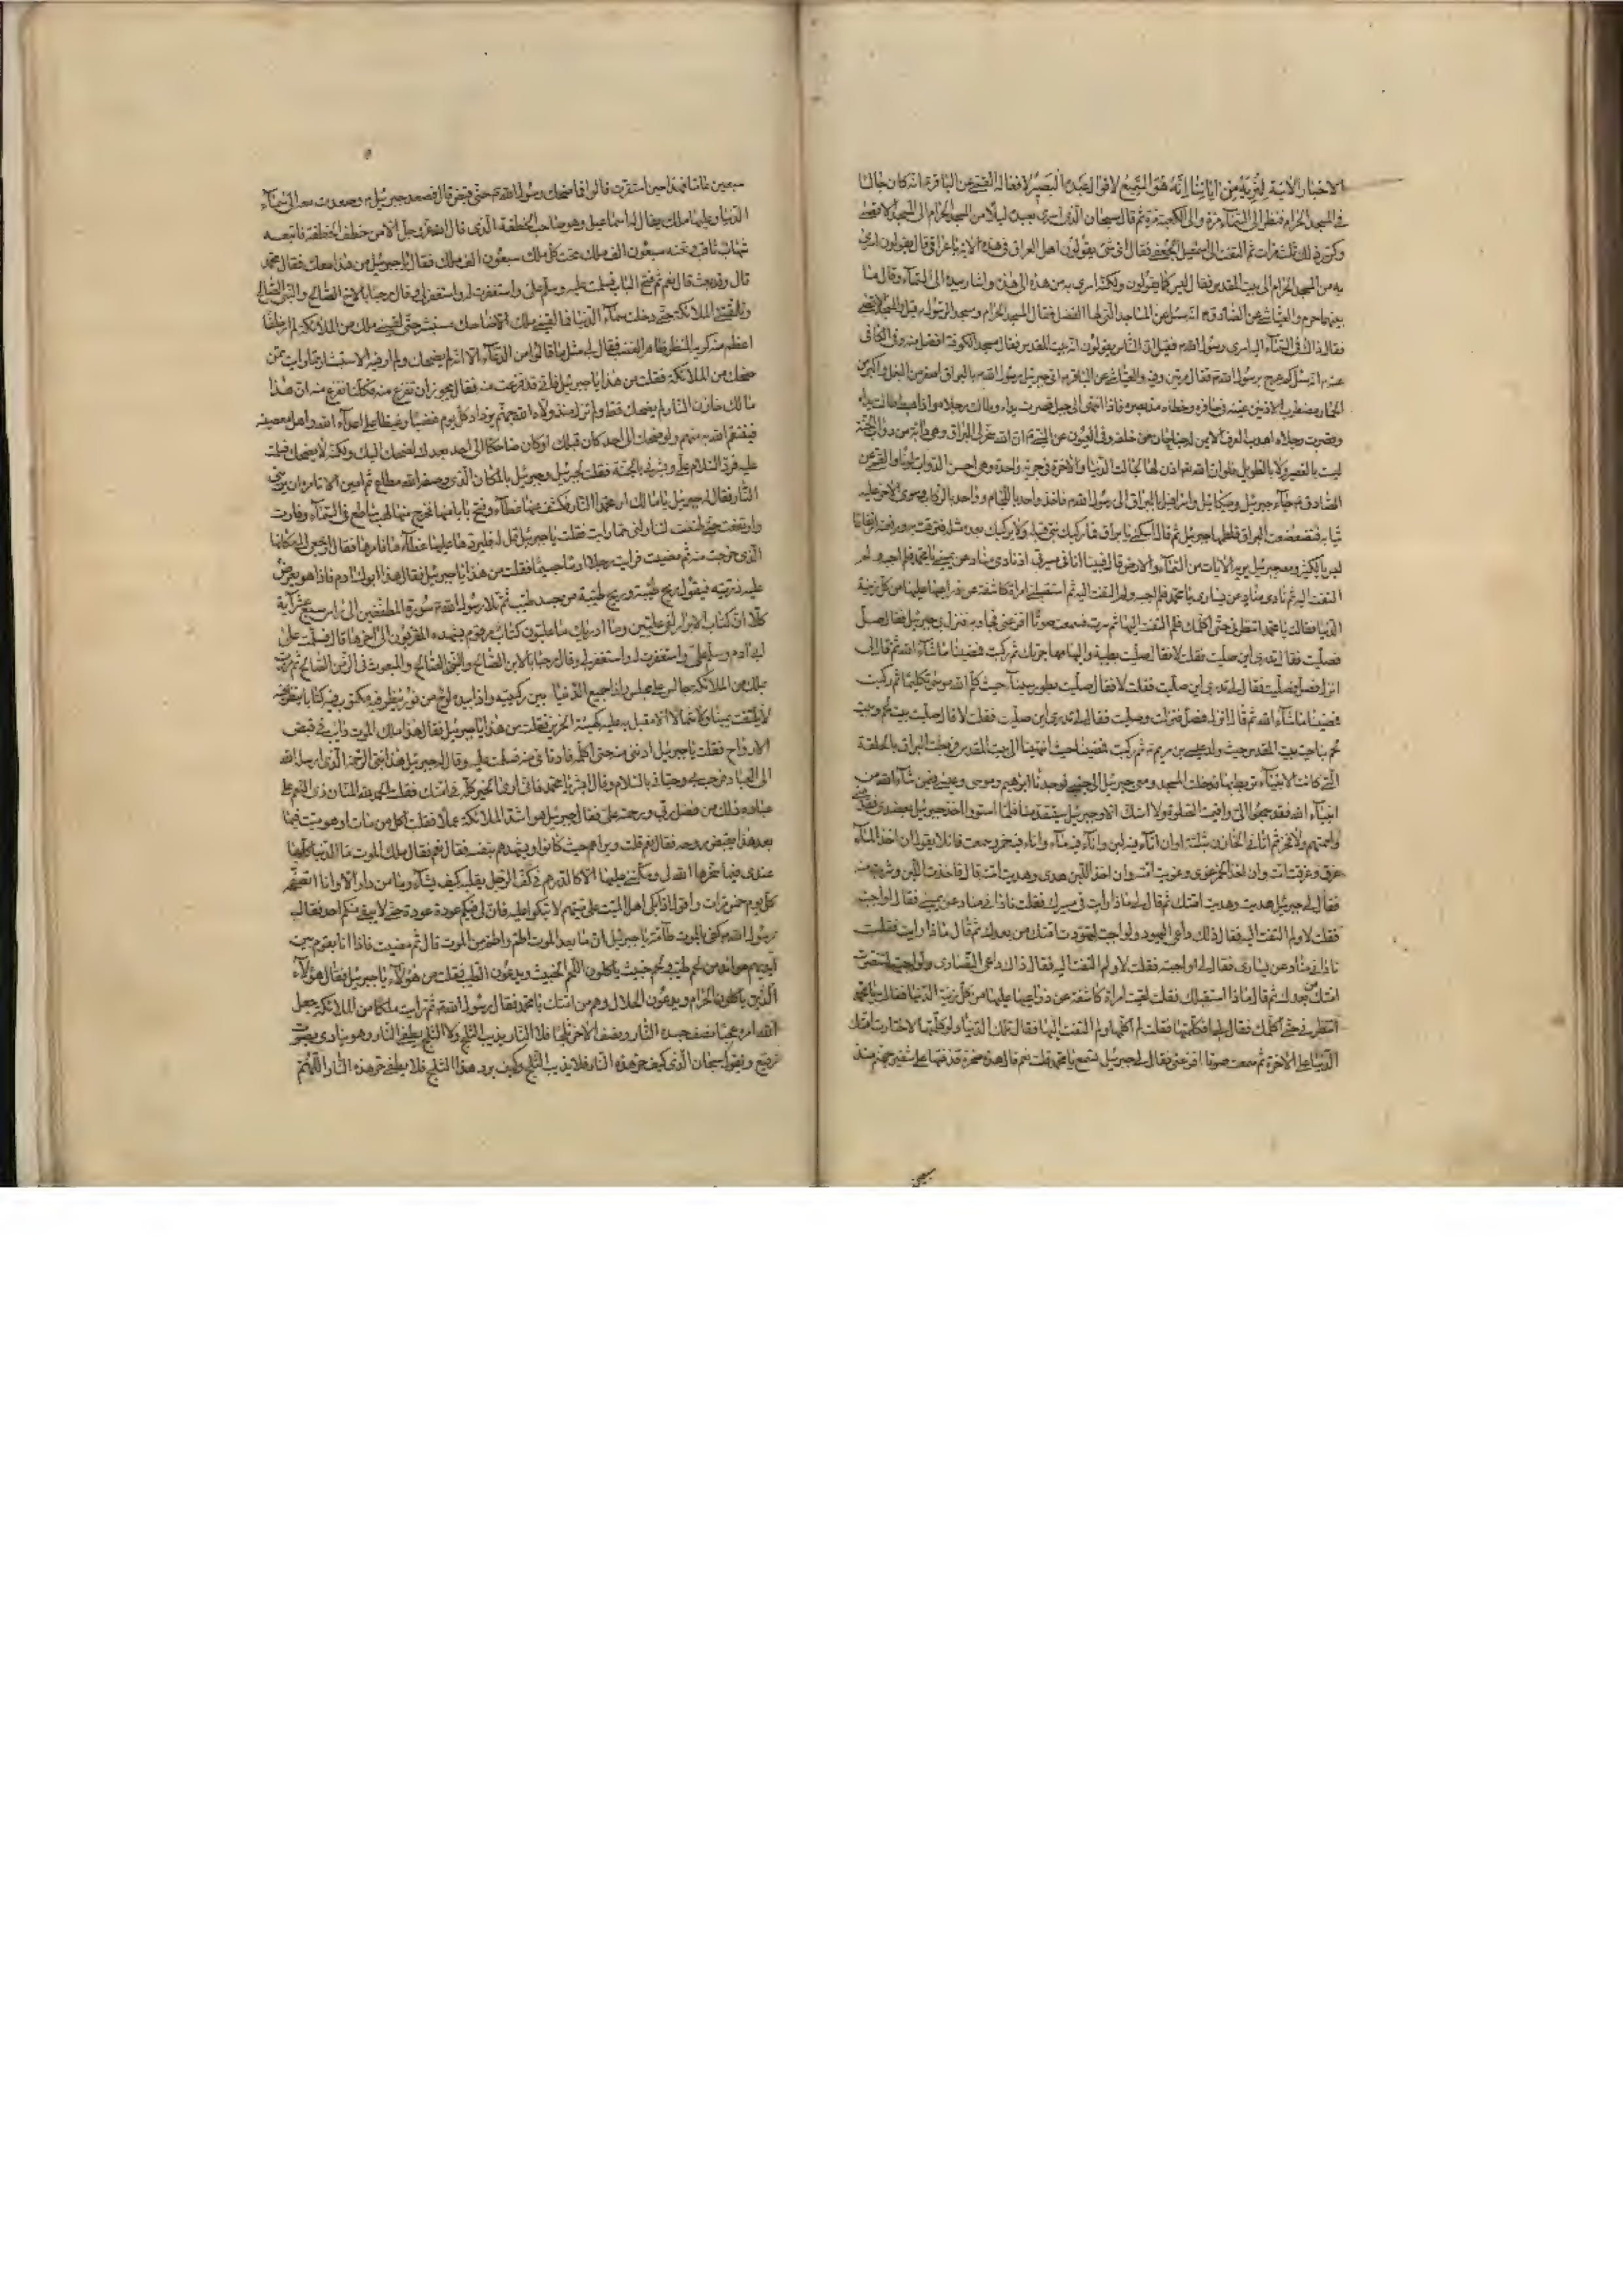 الاخبار الاتية لِنُرِيَهُ مِنْ اٰيَاتِنَا اِنَّهُ هُوَ السَّمِيعُ لاقوال عبده الْبَصِيرُ لافعاله القمي عن الباقر ع انه كان جالسا
في المسجد الحرام فنظر الى السماء مرة والى الكعبة مرة ثم قال سبحان الذي اسرى بعبده ليلا من المسجد الحرام الى المسجد الاقصى
وكرر ذلك ثلث مرات ثم التفت الى اسمعيل الجعفي فقال اي شئ يقولون اهل العراق في هذه الاية يا عراقي قال يقولون اسرى
به من المسجد الحرام الى بيت المقدس فقال ليس كما يقولون ولكنه اسرى به من هذه الى هذه واشار بيده الى السماء وقال ما
بينهما حرم والعياشي عن الصادق ع انه سئل عن المساجد التي لها الفضل فقال المسجد الحرام ومسجد الرسول قيل والمسجد الاقصى
فقال ذاك في السماء اليه اسرى رسول الله ص فقيل ان الناس يقولون انه بيت المقدس فقال مسجد الكوفة افضل منه وفي الكافي
عنه ع انه سئل كم عرج برسول الله ص فقال مرتين وفيه والعياشي عن الباقر ع اتى جبرئيل رسول الله ص بالبراق اصغر من البغل واكبر من
الحمار مضطرب الاذنين عينيه في حافره وخطاه مد بصره فاذا انتهى الى جبل قصرت يداه وطالت رجلاه واذا هبط طالت يداه
وقصرت رجلاه اهدب العرف الايمن له جناحان من خلفه وفي العيون عن النبي ص ان الله سخر لي البراق وهي دابة من دواب الجنة
ليست بالقصير ولا بالطويل فلو ان الله تعالى اذن لها لجالت الدنيا والاخرة في جرية واحدة وهي احسن الدواب لونا والقمي عن
الصادق ع جاء جبرئيل وميكائيل واسرافيل بالبراق الى رسول الله ص فاخذ واحد باللجام وواحد بالركاب وسوى الاخر عليه
ثيابه فتضعضعت البراق فلطمها جبرئيل ثم قال اسكني يا براق فما ركبك نبي قبله ولا يركبك بعده مثله فرقت به ورفعته ارتفاعا
ليس بالكثير ومعه جبرئيل يريه الايات من السماء والارض قال فبينا انا في مسيري اذ نادى مناد عن يميني يا محمد فلم اجبه ولم
التفت اليه ثم نادى مناد عن يساري يا محمد فلم اجبه ولم التفت اليه ثم استقبلتني امرأة كاشفة عن ذراعيها عليها من كل زينة
الدنيا فقالت يا محمد انتظرني حتى اكلمك فلم التفت اليها ثم سرت فسمعت صوتا افزعني فجاوزته فنزل بي جبرئيل فقال صل
فصليت فقال تدري اين صليت فقلت لا فقال صليت بطيبة واليها مهاجرتك ثم ركبت فمضينا ما شاء الله ثم قال لي
انزل فصل فصليت فقال لي تدري اين صليت فقلت لا فقال صليت بطور سيناء حيث كلم الله موسى تكليما ثم ركبت
فمضينا ما شاء الله ثم قال انزل فصل فنزلت وصليت فقال لي تدري اين صليت فقلت لا قال صليت ببيت لحم وبيت
لحم بناحية بيت المقدس حيث ولد عيسى بن مريم ثم ركبت فمضينا حتى انتهينا الى بيت المقدس فربطت البراق بالحلقة
التي كانت الانبياء تربط بها فدخلت المسجد ومعي جبرئيل الى جنبي فوجدنا ابرهيم وموسى وعيسى فيمن شاء الله من
انبياء الله فقد جمعوا الي واقيمت الصلوة ولا اشك الا وجبرئيل سيتقدمنا فلما استووا اخذ جبرئيل بعضدي فقدمني
واممتهم ولا فخر ثم اتاني الخازن بثلثة اوان اناء فيه لبن واناء فيه ماء واناء فيه خمر وسمعت قائلا يقول ان اخذ الماء
غرق وغرقت امته وان اخذ الخمر غوى وغويت امته وان اخذ اللبن هدى وهديت امته قال فاخذت اللبن وشربت منه
فقال لي جبرئيل هديت وهديت امتك ثم قال لي ماذا رايت في مسيرك فقلت ناداني مناد عن يميني فقال لي اواجبته
فقلت لا ولم التفت اليه فقال ذلك داعي اليهود ولو اجبته لتهودت امتك من بعدك ثم قال ماذا رايت فقلت
ناداني مناد عن يساري فقال لي اواجبته فقلت لا ولم التفت اليه فقال ذاك داعي النصارى ولو اجبته لتنصرت
امتك من بعدك ثم قال ماذا استقبلك فقلت لقيت امراة كاشفة عن ذراعيها عليها من كل زينة الدنيا فقالت يا محمد
انتظرني حتى اكلمك فقال لي افكلمتها فقلت لم اكلمها ولم التفت اليها فقال تلك الدنيا ولو كلمتها لاختارت امتك
الدنيا على الاخرة ثم سمعت صوتا افزعني فقال لي جبرئيل تسمع يا محمد قلت نعم قال هذه صخرة قذفتها على شفير جهنم منذ
سبعين
سبعين عاما فهذا حين استقرت قالوا فما ضحك رسول الله ص حتى قبض قال فصعد جبرئيل وصعدت معه الى سماء
الدنيا وعليها ملك يقال له اسماعيل وهو صاحب الخطفة الذي قال الله عز وجل الا من خطف الخطفة فاتبعه
شهاب ثاقب وتحته سبعون الف ملك تحت كل ملك سبعون الف ملك فقال يا جبرئيل من هذا معك فقال محمد
قال وقد بعث قال نعم ثم فتح الباب فسلمت عليه وسلم علي واستغفرت له واستغفر لي وقال مرحبا بالاخ الصالح والنبي الصالح
وتلقتني الملائكة حتى دخلت سماء الدنيا فما لقيني ملك الا ضاحك مستبشر حتى لقيني ملك من الملائكة لم ار خلقا
اعظم منه كريه المنظر ظاهر الغضب فقال لي مثل ما قالوا من الدعاء الا انه لم يضحك ولم ار فيه الاستبشار وما رايت ممن
ضحك من الملائكة فقلت من هذا يا جبرئيل فاني قد فزعت منه فقال يجوز ان تفزع منه فكلنا نفزع منه ان هذا
مالك خازن النار لم يضحك قط ولم يزل منذ ولاه الله جهنم يزداد كل يوم غضبا وغيظا على اعداء الله واهل معصيته
فينتقم الله به منهم ولو ضحك الى احد كان قبلك او كان ضاحكا الى احد بعدك لضحك اليك ولكنه لا يضحك فسلمت
عليه فرد السلام علي وبشرني بالجنة فقلت لجبرئيل وجبرئيل بالمكان الذي وصفه الله مطاع ثم امين الا تامره ان يريني
النار فقال له جبرئيل يا مالك ار محمدا النار فكشف عنها غطاء وفتح بابا منها فخرج منها لهب ساطع في السماء وفارت
وارتفعت حتى ظننت ليتناولني مما رايت فقلت يا جبرئيل قل له فليرد عليها غطاءها فامرها فقال ارجعي الى مكانها
الذي خرجت منه ثم مضيت فرايت رجلا ادما جسيما فقلت من هذا يا جبرئيل فقال هذا ابوك ادم فاذا هو يعرض
عليه ذريته فيقول ريح طيبة وريح طيبة من جسد طيب ثم تلا رسول الله ص سورة المطففين الى راس سبع عشر آية
كلا ان كتاب الابرار لفي عليين وما ادراك ما عليون كتاب مرقوم يشهده المقربون الى اخرها قال فسلمت على
ابي ادم وسلم علي واستغفرت له واستغفر لي وقال مرحبا بالابن الصالح والنبي الصالح والمبعوث في الزمن الصالح ثم مررت
بملك من الملائكة جالس على مجلس واذا جميع الدنيا بين ركبتيه واذا بيده لوح من نور ينظر فيه مكتوب فيه كتابا ينظر فيه
لا يلتفت يمينا ولا شمالا الا مقبل به عليه كهيئة الحزين فقلت من هذا يا جبرئيل فقال هذا ملك الموت دايب في قبض
الارواح فقلت يا جبرئيل ادنني منه حتى اكلمه فادناني منه فسلمت عليه وقال له جبرئيل هذا نبي الرحمة الذي ارسله الله
الى العباد فرحب بي وحياني بالسلام وقال ابشر يا محمد فاني ارى الخير كله في امتك فقلت الحمد لله المنان ذي النعم على
عباده ذلك من فضل ربي ورحمته علي فقال جبرئيل هو اشد الملائكة عملا فقلت اكل من مات او هو ميت فيما
بعد هذا يقبض روحه فقال نعم قلت ويراهم حيث كانوا ويشهدهم بنفسه فقال نعم فقال ملك الموت ما الدنيا كلها
عندي فيما سخرها الله لي ومكنني عليها الا كالدرهم في كف الرجل يقلبه كيف يشاء وما من دار الا وانا اتصفحه
كل يوم خمس مرات واقول اذا بكى اهل الميت على ميتهم لا تبكوا عليه فان لي فيكم عودة عودة حتى لا يبقى منكم احد فقال
رسول الله ص كفى بالموت طامة يا جبرئيل فقال جبرئيل ان ما بعد الموت اطم واطم من الموت قال ثم مضيت فاذا انا بقوم بين
ايديهم موائد من لحم طيب ولحم خبيث ياكلون اللحم الخبيث ويدعون الطيب فقلت من هؤلاء يا جبرئيل فقال هؤلاء
الذين ياكلون الحرام ويدعون الحلال وهم من امتك يا محمد فقال رسول الله ص ثم رايت ملكا من الملائكة جعل
الله امره عجبا نصف جسده النار ونصف الاخر ثلجا فلا النار يذيب الثلج ولا الثلج يطفي النار وهو ينادي بصوت
رفيع ويقول سبحان الذي كف حر هذه النار فلا يذيب الثلج وكف برد هذا الثلج فلا يطفي حر هذه النار اللهم